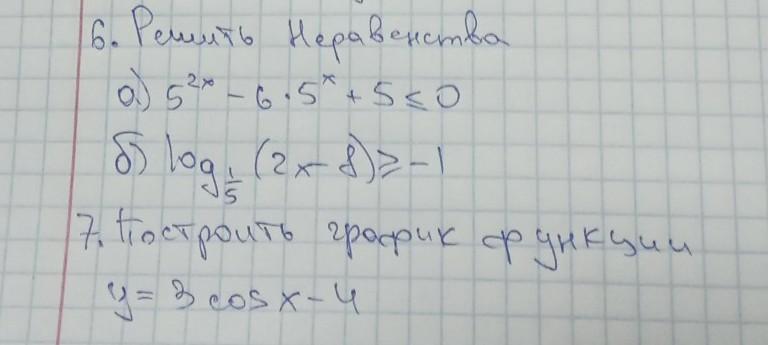 6. Решить Неравенства
а) 5²ˣ – 6 · 5ˣ + 5 ≤ 0
б) log_{1/5} (2x – 8) ≥ –1
7. Построить график функции
y = 3 cos x – 4